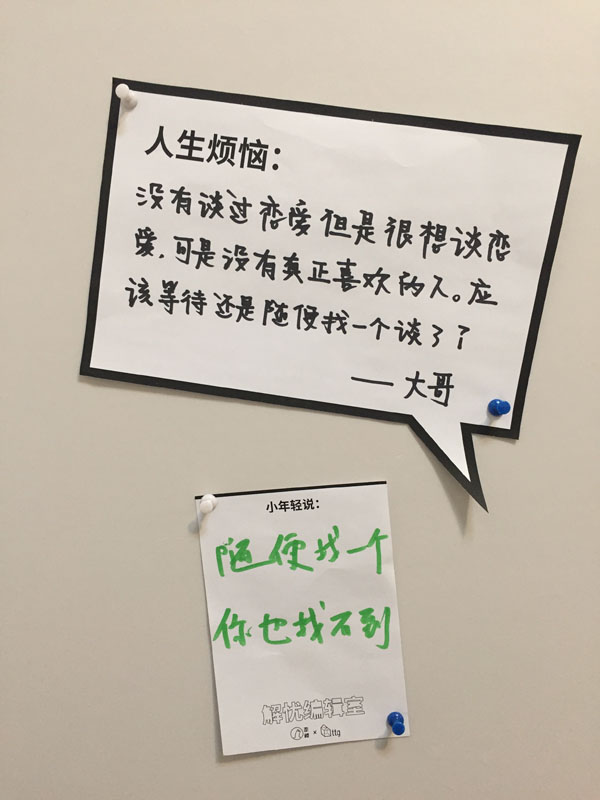 人生烦恼：
没有谈过恋爱但是很想谈恋
爱，可是没有真正喜欢的人。应
该等待还是随便找一个谈了了
—— 大哥
小年轻说：
随便找一个
你也找不到
解忧编辑室
× ttg